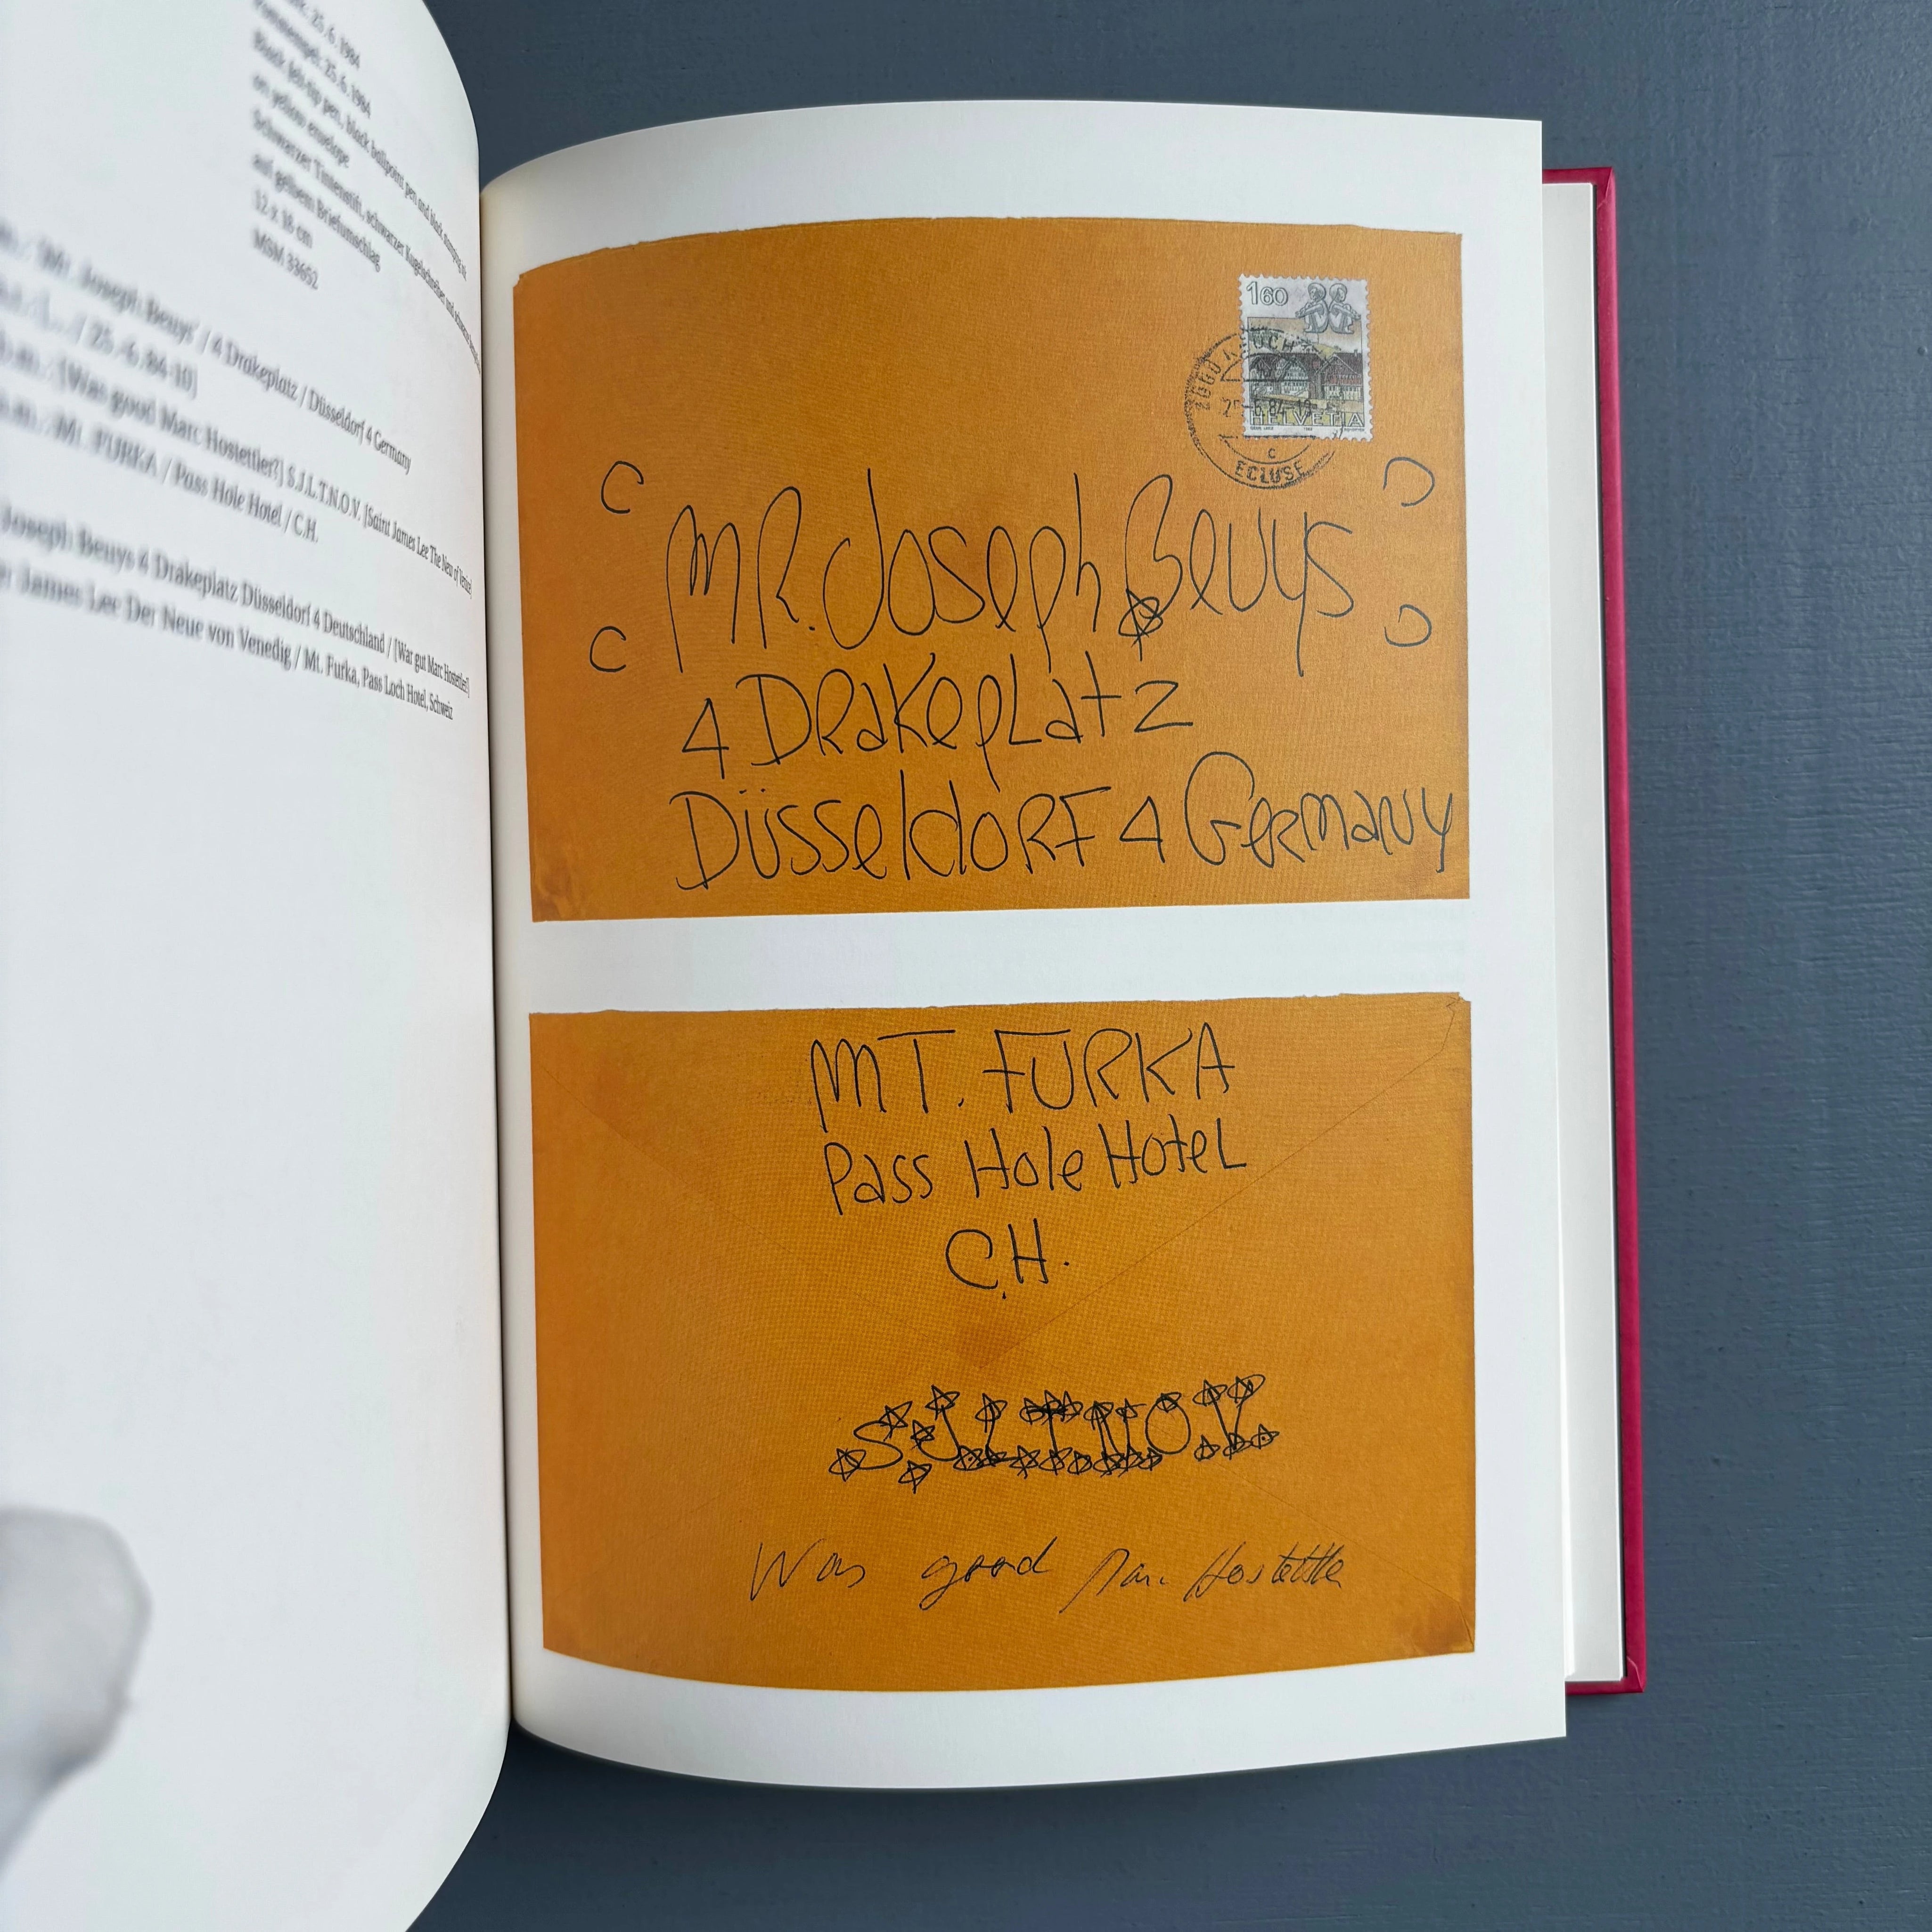 25.6.1984
25.6.1984
Black felt-tip pen, black ballpoint pen and black stamping ink
on yellow envelope
Schwarzer Tintenstift, schwarzer Kugelschreiber und schwarzer
auf gelbem Briefumschlag
12 x 18 cm
MSM 33652
'Mr. Joseph Beuys' / 4 Drakeplatz / Düsseldorf 4 Germany
/ 25.-6.84-10]
[Was good Marc Hostettler?] S.J.L.T.N.O.V. [Saint James Lee The New of Venice]
Mt. FURKA / Pass Hole Hotel / C.H.
Joseph Beuys 4 Drakeplatz Düsseldorf 4 Deutschland / [War gut Marc Hostettler?]
James Lee Der Neue von Venedig / Mt. Furka, Pass Loch Hotel, Schweiz
160
HELVETIA
25-6.84-10
C
ECLUSE
MR. Joseph Beuys
4 DRakepLatz
DüsseldoRF 4 GeRMaNy
MT. FURKA
Pass Hole HoteL
C.H.
S.J.L.T.N.O.V.
Was good Marc Hostettler